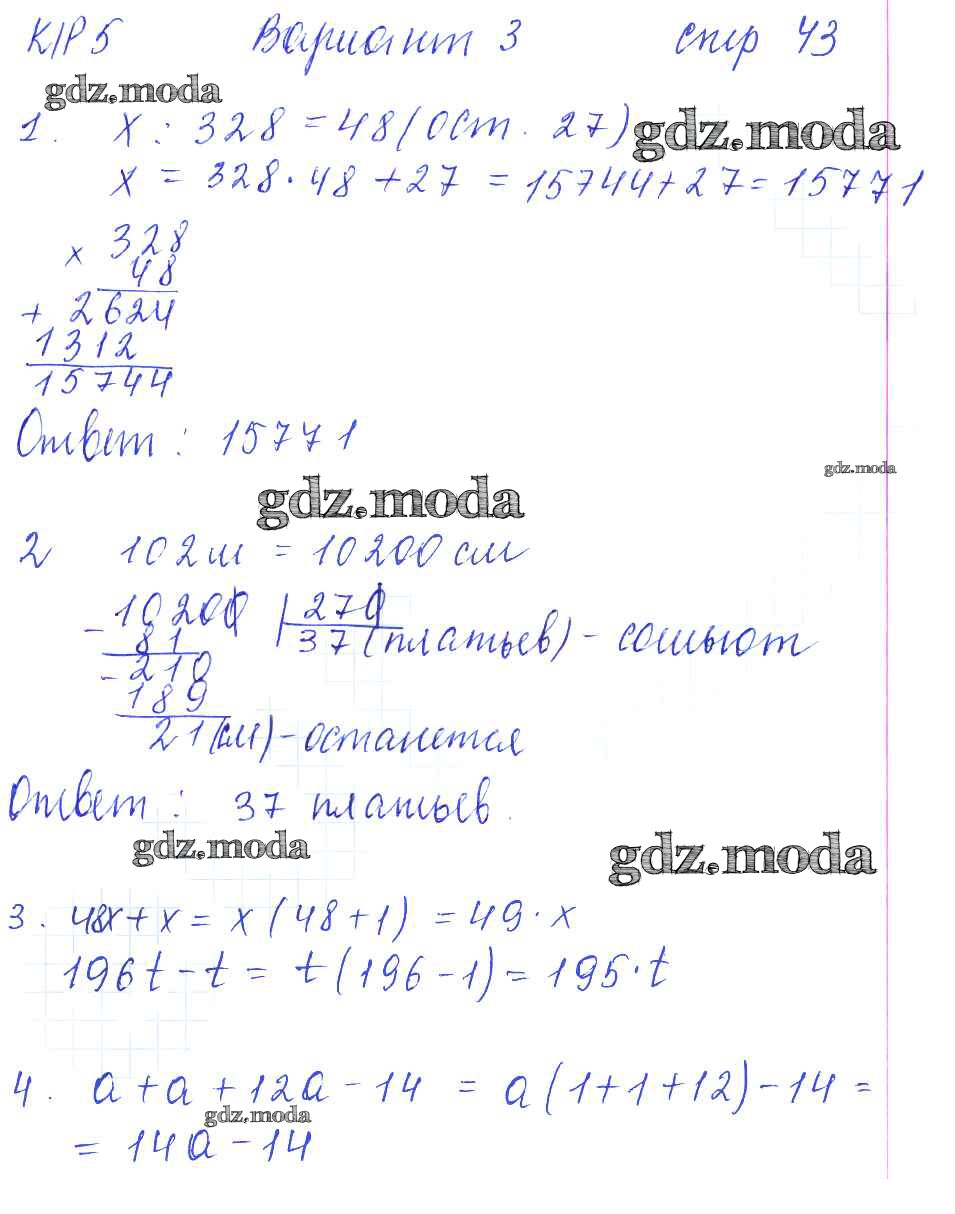 К/Р 5 Вариант 3 стр 43
gdz.moda
1. x : 328 = 48 (ост. 27)
gdz.moda
x = 328 · 48 + 27 = 15744 + 27 = 15771
× 328
48
+ 2624
1312
15744
Ответ : 15771
gdz.moda
gdz.moda
2 102 м = 10200 см
- 10200 | 270
81 37 (платьев) - сошьют
- 210
189
21 (см) - останется
Ответ : 37 платьев.
gdz.moda
gdz.moda
3. 48x + x = x (48 + 1) = 49 · x
196t - t = t (196 - 1) = 195 · t
4. a + a + 12a - 14 = a (1 + 1 + 12) - 14 =
gdz.moda
= 14a - 14